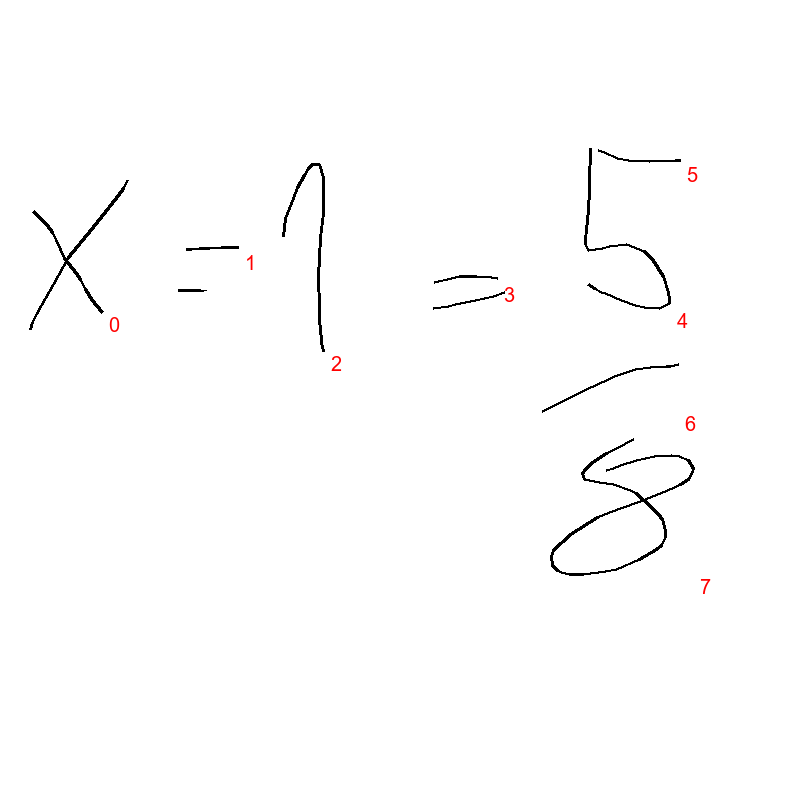 x = 1 = 5/8
0 1 2 3 4 5 6 7